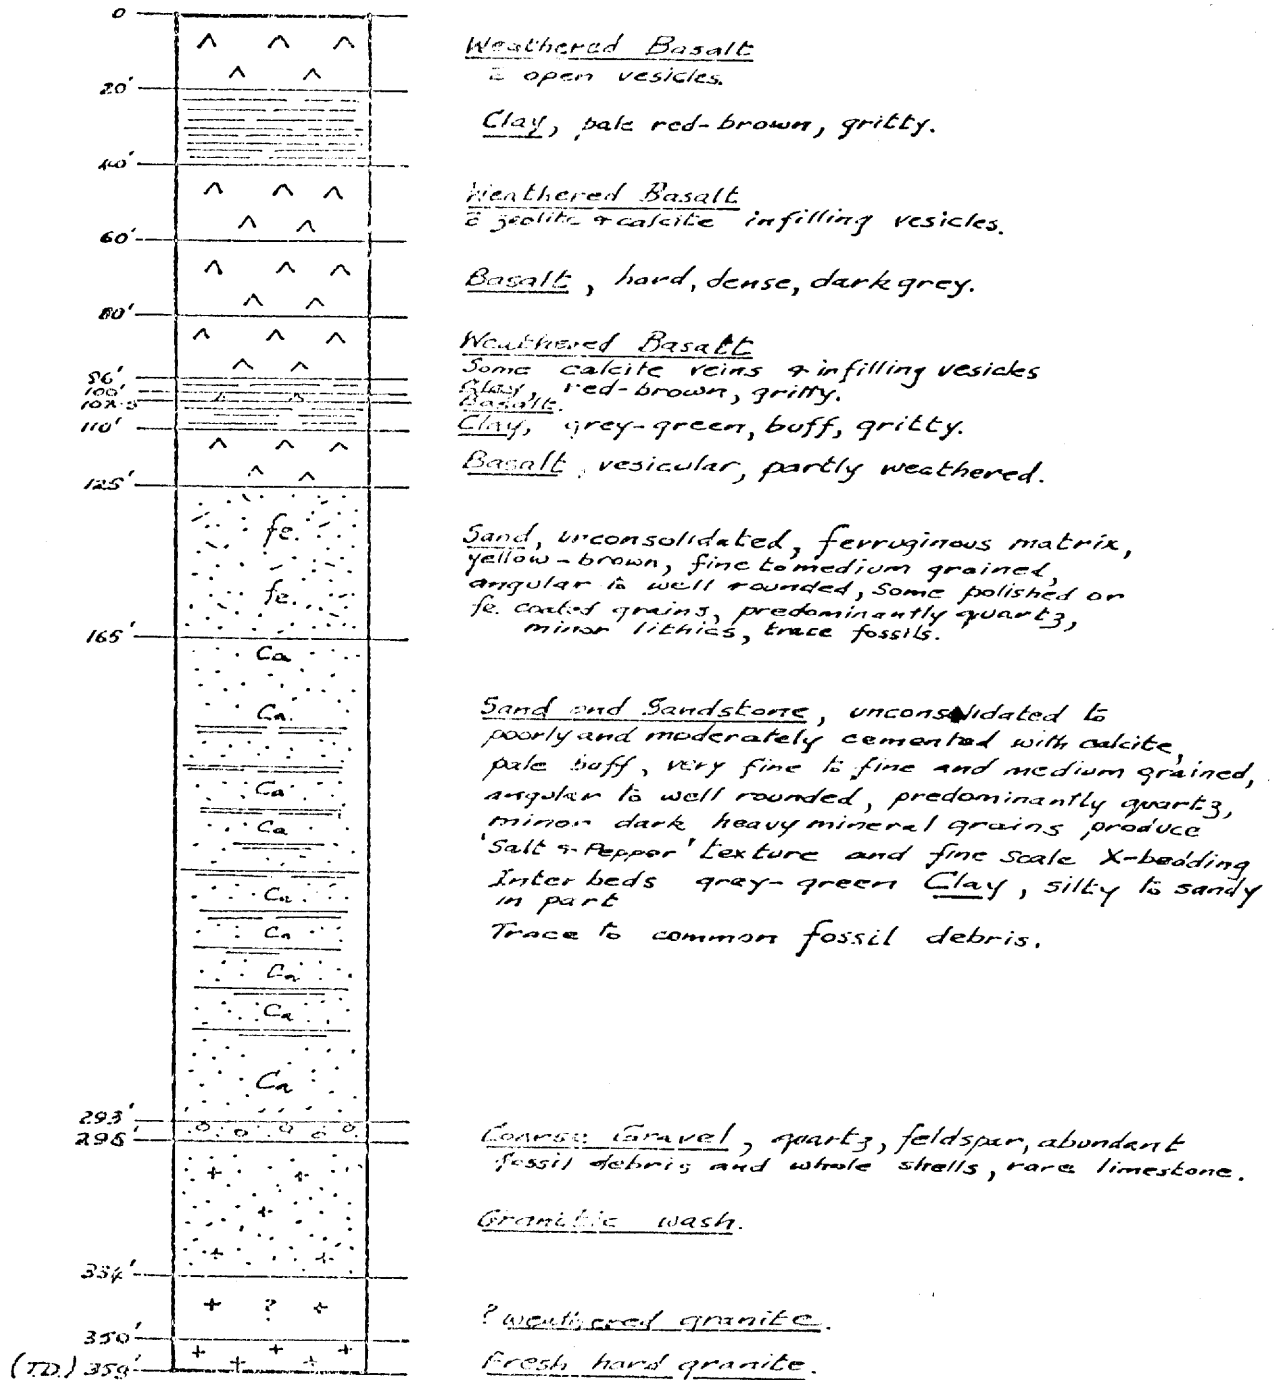 0
Weathered Basalt
c̄ open vesicles.
20'
Clay, pale red-brown, gritty.
40'
Weathered Basalt
c̄ zeolite & calcite infilling vesicles.
60'
Basalt, hard, dense, dark grey.
80'
Weathered Basalt
Some calcite veins & infilling vesicles
96'
Clay, red-brown, gritty.
100'
Basalt.
102.5
Clay, grey-green, buff, gritty.
110'
Basalt, vesicular, partly weathered.
125'
fe.
Sand, unconsolidated, ferruginous matrix,
yellow-brown, fine to medium grained,
angular to well rounded, Some polished or
fe.
fe. coated grains, predominantly quartz,
minor lithics, trace fossils.
165'
Ca
Ca
Sand and Sandstone, unconsolidated to
poorly and moderately cemented with calcite,
pale buff, very fine to fine and medium grained,
Ca
angular to well rounded, predominantly quartz,
Ca
minor dark heavy mineral grains produce
'Salt & Pepper' texture and fine scale X-bedding
Inter beds grey-green Clay, silty to sandy
Ca
in part
Ca
Trace to common fossil debris.
Ca
Ca
Ca
293'
Coarse Gravel, quartz, feldspar, abundant
fossil debris and whole shells, rare limestone.
Granitic wash.
334'
?
? weathered granite.
350'
Fresh hard granite.
(T.D.) 359'